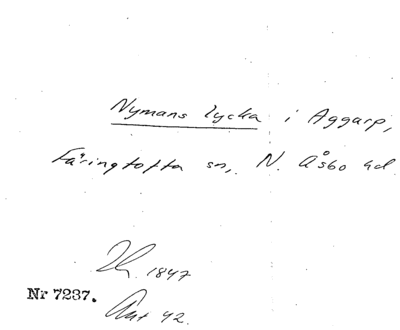 Nymans lycka i Aggarp,
Färingtofta sn, N. Åsbo hd.
1847
Nr 7237.
42.